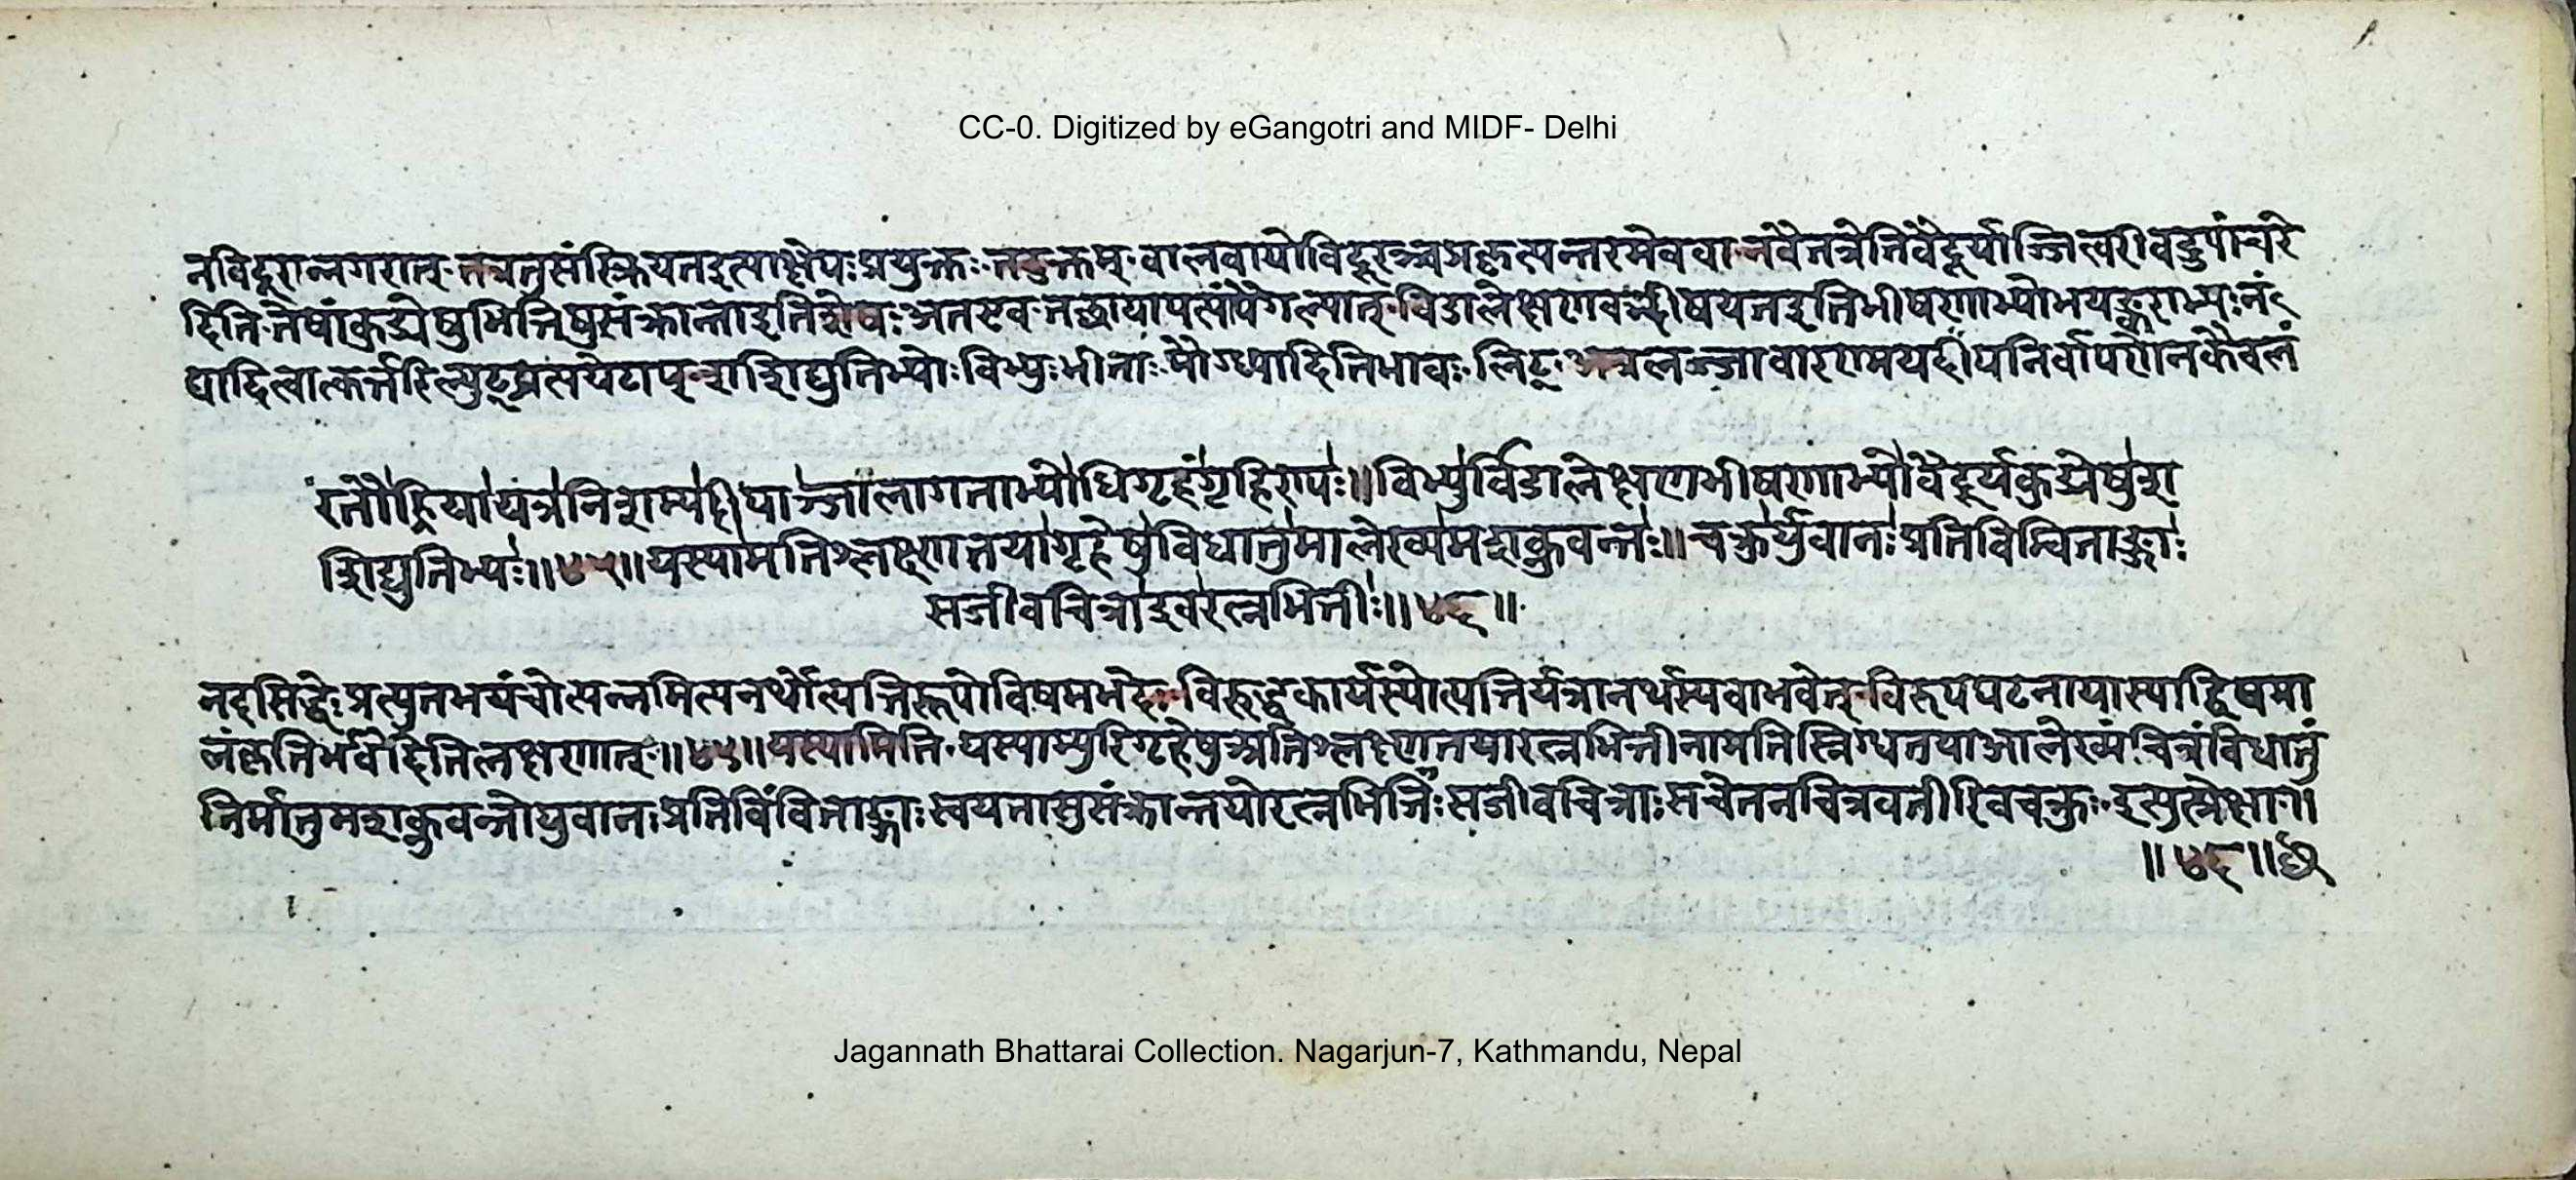 CC-0. Digitized by eGangotri and MIDF- Delhi
नविदूरान्नगरात् तत्रतुसंस्क्रियतइत्याक्षेपः प्रयुक्तः तदुक्तम् वालवायोविदूरञ्चप्रकृत्यन्तरमेववा नवैतत्रेतिचेद्ब्रूयाज्जित्वरीवदुपाचरे
दिति तेषांकुड्येषुभित्तिषुसंक्रान्ताइतिशेषः अतएव तच्छायापत्त्यापैंगल्यात् विडालेक्षणवद्भीषयन्तइतिभीषणाभ्योभयङ्कराभ्यः नं
द्यादित्वात्कर्त्तरिल्युट्प्रत्ययेटाप् शशिद्युतिभ्योः विभ्युः भीताः मौग्ध्यादितिभावः लिट् अत्रलज्जावारणायदीपनिर्वापणेनकेवलं
रतौह्रियायत्रनिशाम्यदीपाञ्जालागताभ्योधिगृहंगृहिण्यः॥ विभ्युर्विडालेक्षणभीषणाभ्योवैदूर्यकुड्येषुश
शिद्युतिभ्यः॥४५॥ यस्यामतिश्लक्ष्णतयागृहेषुविधातुमालेख्यमशक्नुवन्तः॥ चक्रुर्युवानःप्रतिविम्बिताङ्गाः
सजीवचित्राइवरत्नभित्तीः॥४६॥
तदसिद्धेः प्रत्युतभयंचोत्पन्नमित्यनर्थोत्पत्तिरूपोविषमभेदः विरुद्धकार्यस्योत्पत्तिर्यत्रानर्थस्यवाभवेत् विरूपघटनायास्याद्विषमा
लंकृतिर्भवेदितिलक्षणात् ॥४५॥ यस्यामिति यस्याम्पुरिगृहेषुअतिश्लक्ष्णतयारत्नभित्तीनामतिस्निग्धतयाआलेख्यं चित्रंविधातुं
निर्मातुमशक्नुवन्तोयुवानः प्रतिविंविताङ्गाः स्वयंतासुसंक्रान्तयोरत्नभित्तीः सजीवचित्राः सचेतनचित्रवतीरिवचक्रुः इत्युत्प्रेक्षा॥
॥४६॥
Jagannath Bhattarai Collection. Nagarjun-7, Kathmandu, Nepal